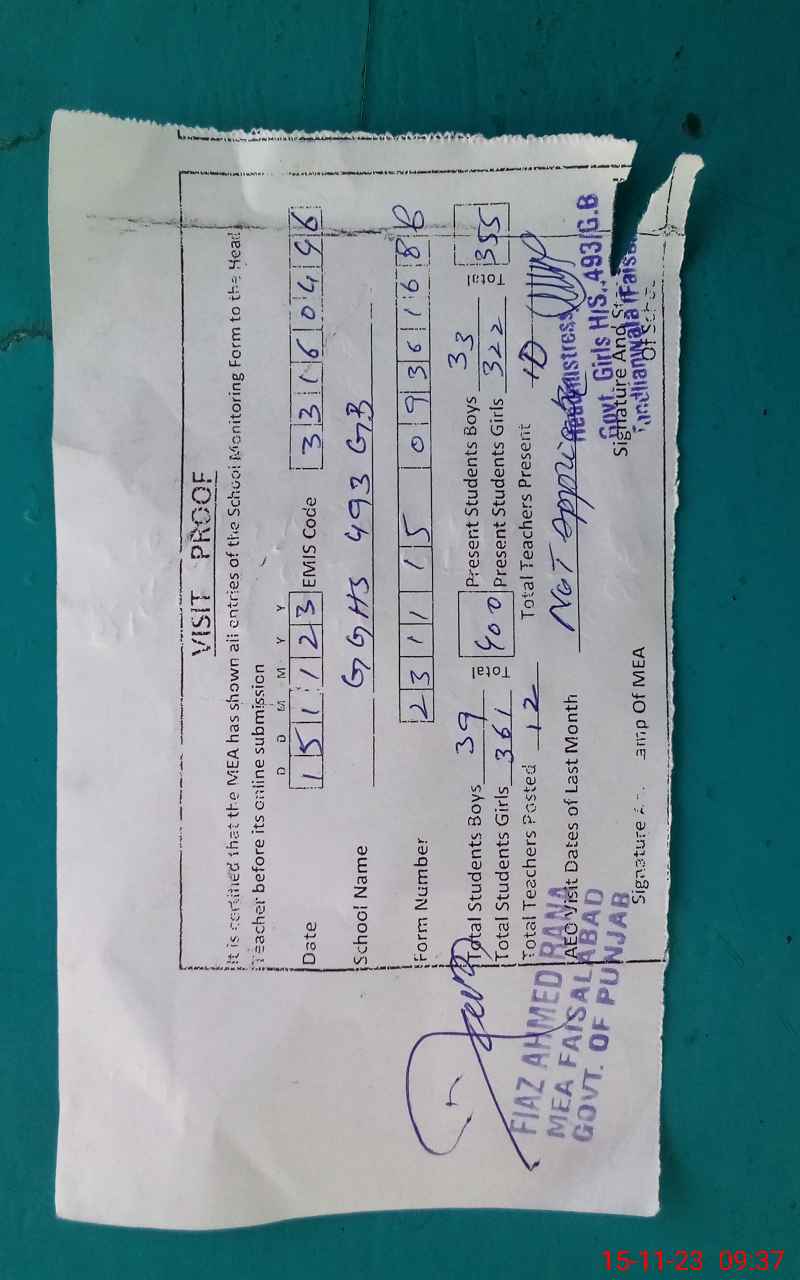 VISIT PROOF
It is certified that the MEA has shown all entries of the School Monitoring Form to the Head
Teacher before its online submission
D D M M Y Y
Date 151123 EMIS Code 33160446
School Name GGHS 493 GB
Form Number 231115 0936168
Total Students Boys 39 Total 400 Present Students Boys 33 Total 355
Total Students Girls 361 Present Students Girls 322
Total Teachers Posted 12 Total Teachers Present 10
AEO Visit Dates of Last Month Not Applicable
Signature And Stamp Of MEA
Signature And
Of School
FIAZ AHMED RANA
MEA FAISALABAD
GOVT. OF PUNJAB
Headmistress
Govt. Girls H/S. 493/G.B
15-11-23 09:37